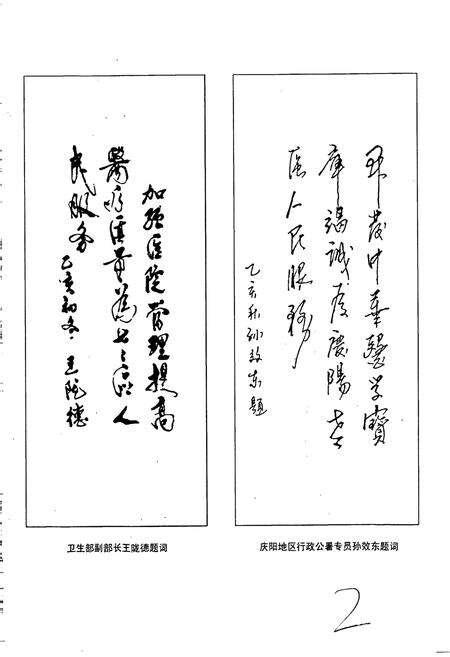 加强医院管理提高
醫疗质量為老区人
民服务
乙亥初冬 王陇德
卫生部副部长王陇德题词
开发中華醫学寶
庫竭誠为慶陽老
区人民服務
乙亥秋孙效东题
庆阳地区行政公署专员孙效东题词
2